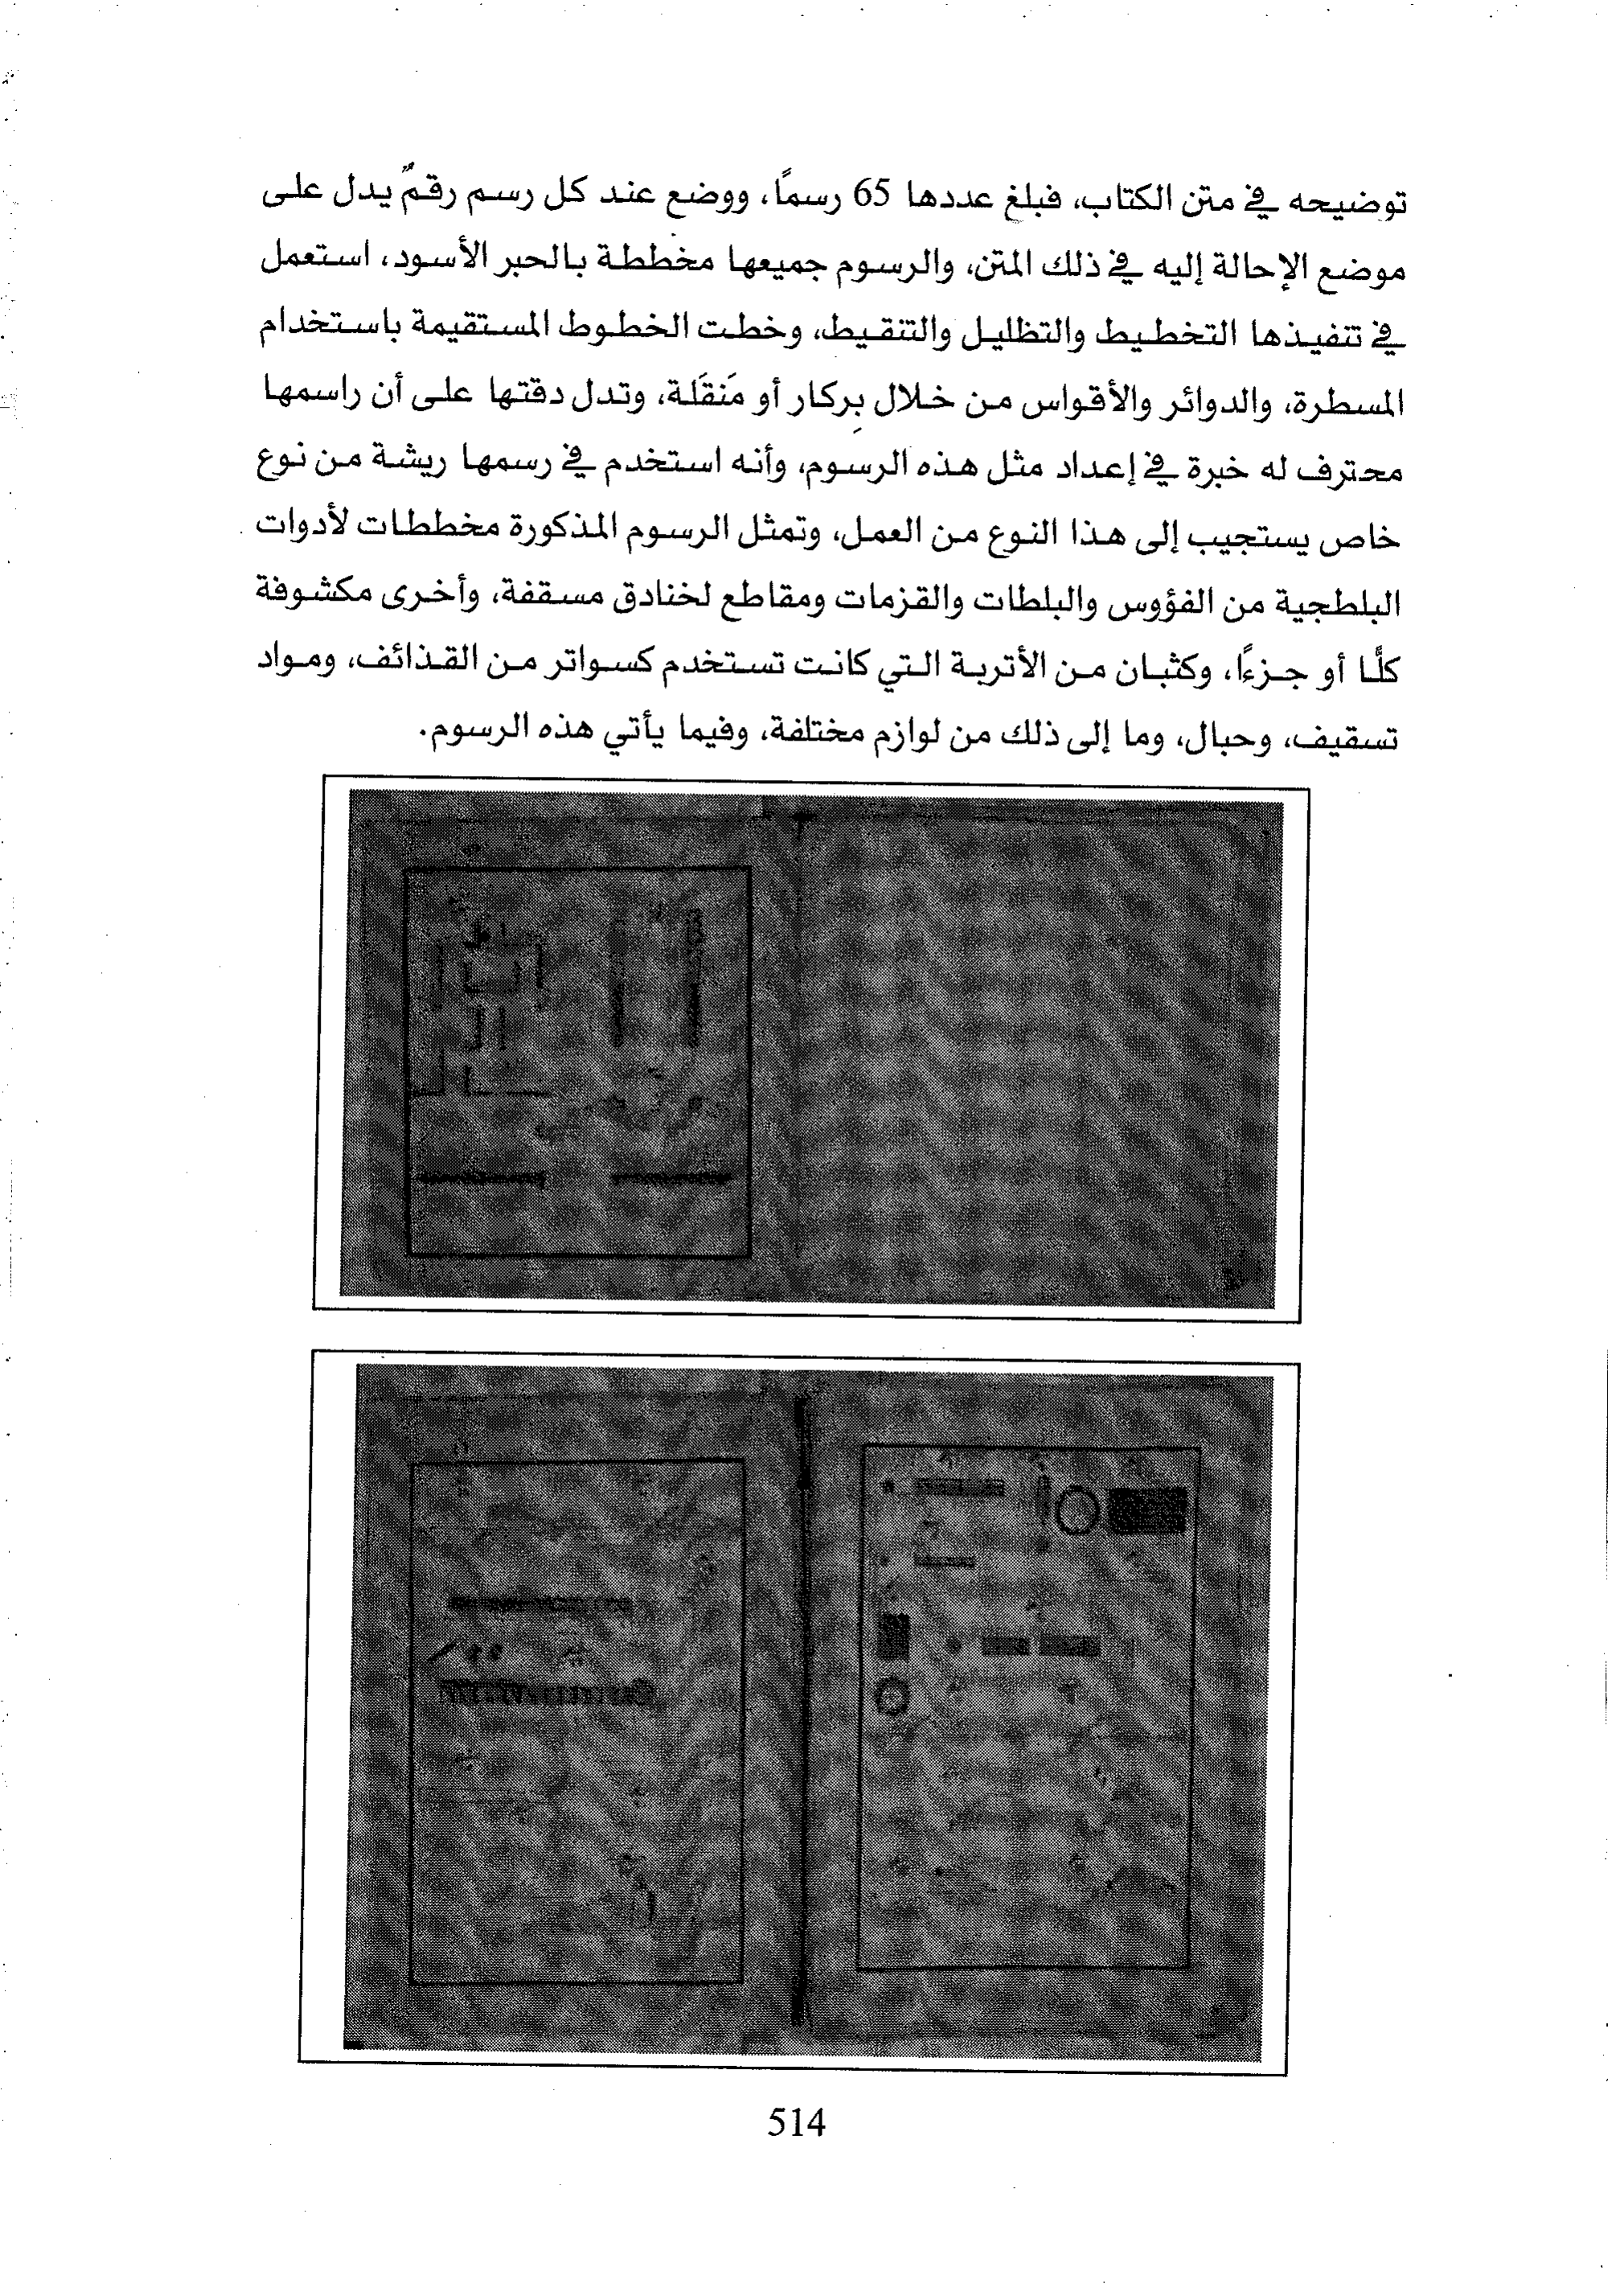 توضيحه في متن الكتاب، فبلغ عددها 65 رسماً، ووضع عند كل رسم رقمٌ يدل على
موضع الإحالة إليه في ذلك المتن، والرسوم جميعها مخططة بالحبر الأسود، استعمل
في تنفيذها التخطيط والتظليل والتنقيط، وخطت الخطوط المستقيمة باستخدام
المسطرة، والدوائر والأقواس من خلال بِركار أو مَنقَلة، وتدل دقتها على أن راسمها
محترف له خبرة في إعداد مثل هذه الرسوم، وأنه استخدم في رسمها ريشة من نوع
خاص يستجيب إلى هذا النوع من العمل، وتمثل الرسوم المذكورة مخططات لأدوات
البلطجية من الفؤوس والبلطات والقزمات ومقاطع لخنادق مسقفة، وأخرى مكشوفة
كلًّا أو جزءًا، وكثبان من الأتربة التي كانت تستخدم كسواتر من القذائف، ومواد
تسقيف، وحبال، وما إلى ذلك من لوازم مختلفة، وفيما يأتي هذه الرسوم.
514